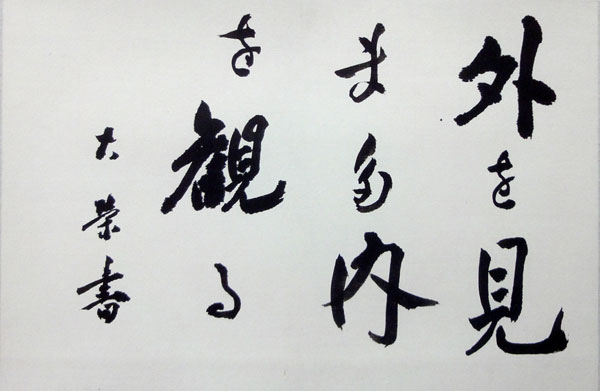 外を見
また内
を観る
大栄書